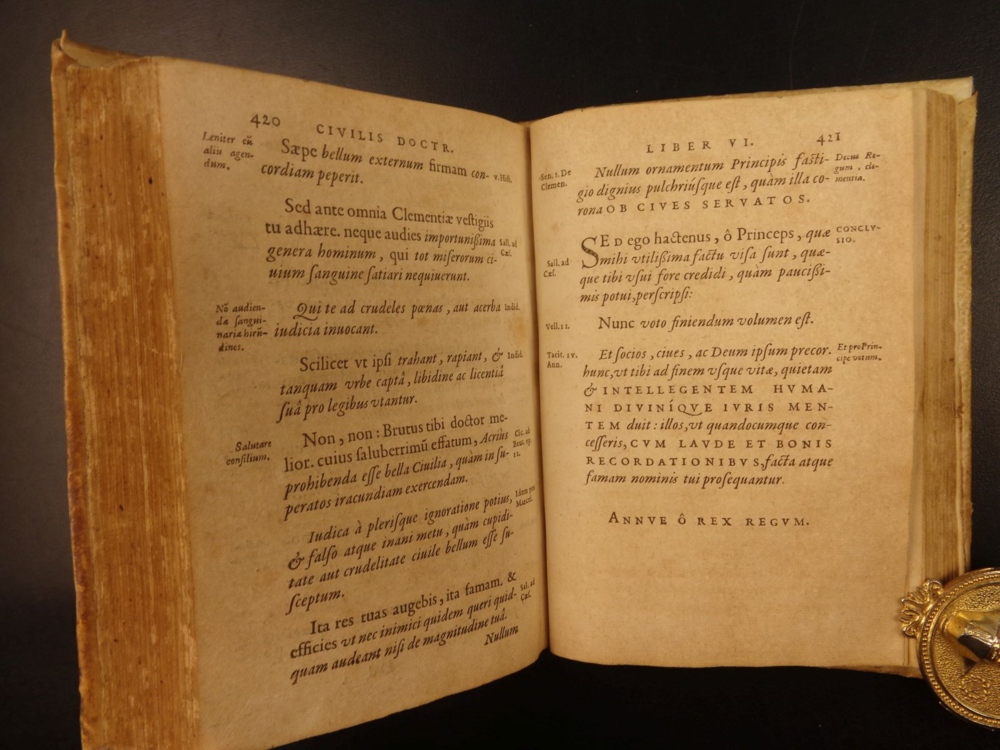 420 CIVILIS DOCTR.
Leniter cũ
aliu agen-
dum.
Sæpe bellum externum firmam con-
cordiam peperit.
v. Hist.
Sed ante omnia Clementiæ vestigiis
tu adhære. neque audies importunißima
genera hominum, qui tot miserorum ci-
uium sanguine satiari nequiuerunt.
Sall. ad
Cæs.
Nõ audien-
dæ sangui-
nariæ hirũ-
dines.
Qui te ad crudeles pœnas, aut acerba
iudicia inuocant.
Ibidid.
Scilicet vt ipsi trahant, rapiant, &
tanquam vrbe captâ, libidine ac licentiâ
suâ pro legibus vtantur.
Ibidid.
Salutare
consilium.
Non, non: Brutus tibi doctor me-
lior. cuius saluberrimũ effatum, Acriùs
prohibenda esse bella Ciuilia, quàm in su-
peratos iracundiam exercendam.
Cic. ad
Brut. ep.
Iudica à plerisque ignoratione potius,
& falso atque inani metu, quàm cupidi-
tate aut crudelitate ciuile bellum esse su-
sceptum.
Idem pro
Marcel.
Ita res tuas augebis, ita famam. &
efficies vt nec inimici quidem queri quid-
quam audeant nisi de magnitudine tuâ.
Sal. ad
Cæs.
Nullum
LIBER VI. 421
Sen. 1. De
Clemen.
Nullum ornamentum Principis fasti-
gio dignius pulchriúsque est, quàm illa co-
rona OB CIVES SERVATOS.
Decus Re-
gum, cle-
mentia.
SED ego hactenus, ô Princeps, quæ
mihi vtilißima factu visa sunt, quæ-
que tibi vsui fore credidi, quàm paucißi-
mis potui, perscripsi:
CONCLV-
SIO.
Sall. ad
Cæs.
Nunc voto finiendum volumen est.
Vell. 11.
Tacit. IV.
Ann.
Et socios, ciues, ac Deum ipsum precor.
hunc, vt tibi ad finem vsque vitæ, quietam
& INTELLEGENTEM HVMA-
NI DIVINÍQVE IVRIS MEN-
TEM duit: illos, vt quandocumque con-
cesseris, CVM LAVDE ET BONIS
RECORDATIONIBVS, facta atque
famam nominis tui prosequantur.
Et pro Prin-
cipe votum.
ANNVE Ô REX REGVM.